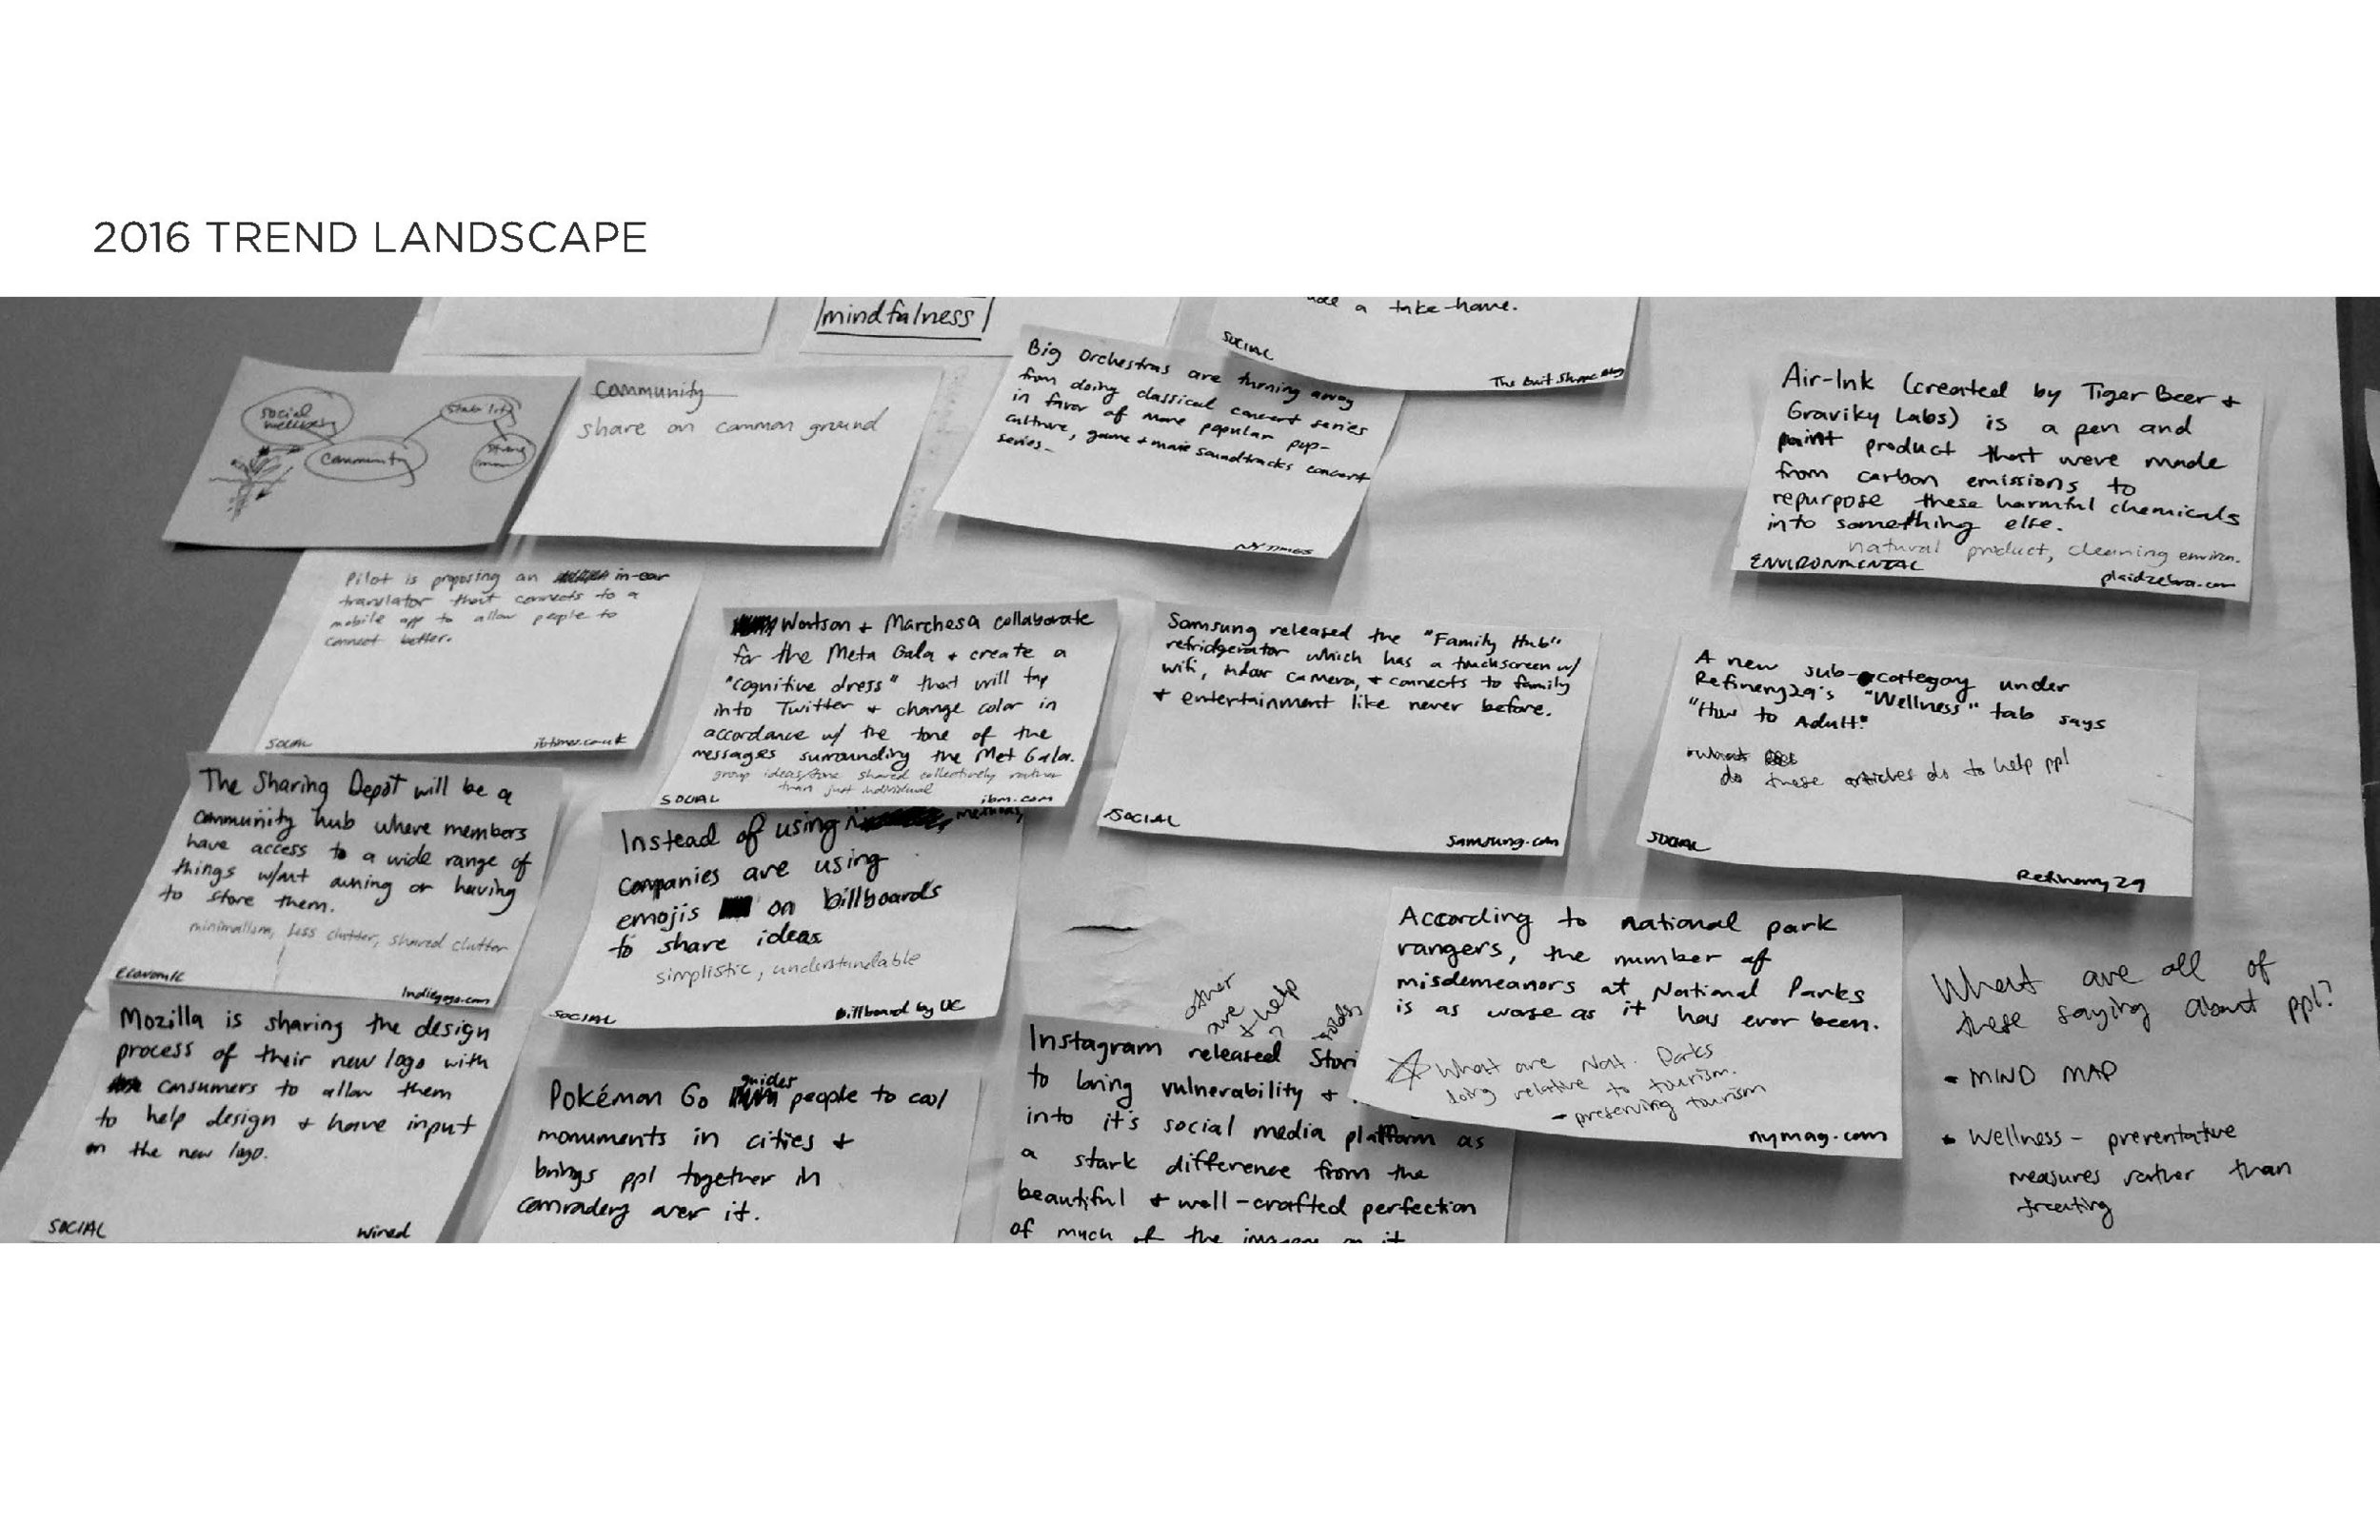 2016 TREND LANDSCAPE
mindfulness
a take-home.
SOCIAL
social
wellness
community
Community
share on common ground
Big Orchestras are turning away
from doing classical concert series
in favor of more popular pop-
culture, game + movie soundtracks concert
series-
NY TIMES
Air-Ink (created by Tiger Beer +
Graviky Labs) is a pen and
paint product that were made
from carbon emissions to
repurpose these harmful chemicals
into something else.
natural product, cleaning environ.
ENVIRONMENTAL
plaidzebra.com
Pilot is proposing an in-ear
translator that connects to a
mobile app to allow people to
connect better.
SOCIAL
ibtimes.co.uk
Watson + Marchesa collaborate
for the Meta Gala + create a
"cognitive dress" that will tap
into Twitter + change color in
accordance w/ the tone of the
messages surrounding the Met Gala.
group ideas/tone shared collectively rather
than just individual
SOCIAL
ibm.com
Samsung released the "Family Hub"
refridgerator which has a touchscreen w/
wifi, indoor camera, + connects to family
+ entertainment like never before.
SOCIAL
Samsung.com
A new sub-category under
Refinery29's "Wellness" tab says
"How to Adult"
what
do these articles do to help ppl
SOCIAL
Refinery29
The Sharing Depot will be a
community hub where members
have access to a wide range of
things w/out owning or having
to store them.
minimalism, less clutter, shared clutter
Economic
Indiegogo.com
Instead of using
companies are using
emojis on billboards
to share ideas
simplistic, understandable
SOCIAL
Billboard by UC
According to national park
rangers, the number of
misdemeanors at National Parks
is as worse as it has ever been.
What are Nat. Parks
doing relative to tourism.
- preserving tourism
nymag.com
Mozilla is sharing the design
process of their new logo with
consumers to allow them
to help design + have input
on the new logo.
SOCIAL
Wired
Pokémon Go guides people to cool
monuments in cities +
brings ppl together in
comradery over it.
other
are
+ help
Instagram released Stori
to bring vulnerability +
into it's social media platform as
a stark difference from the
beautiful + well-crafted perfection
of much of the imagery on it
What are all of
these saying about ppl?
• MIND MAP
• Wellness - preventative
measures rather than
treating